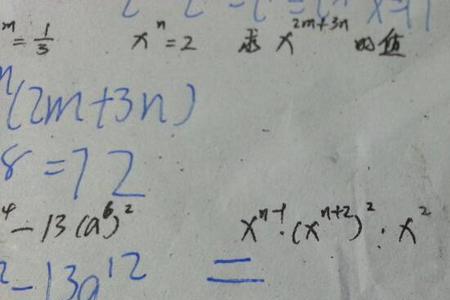 m = 1/3   xⁿ = 2   求 x^{2m+3n} 的值
n(2m+3n)
8 = 72
4 - 13(a⁶)²   x^{n-1}·(x^{n+2})²·x²
2 - 13a¹²   =